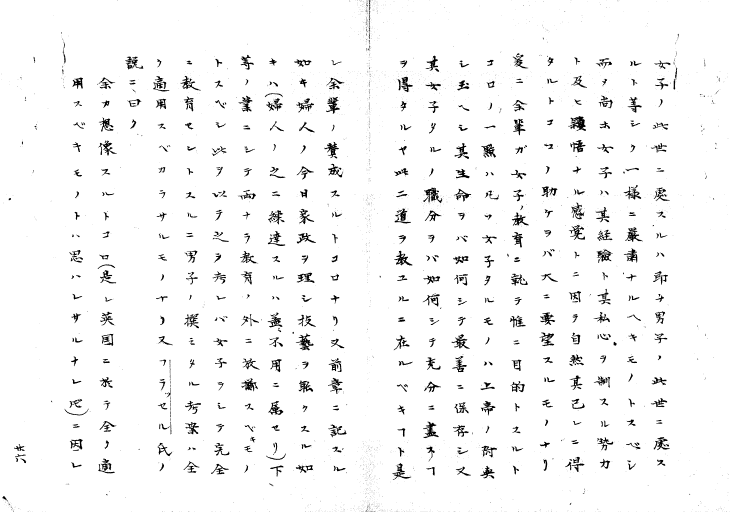 女子ノ此世ニ處スルハ即チ男子ノ此世ニ處ス
ルト等シク一樣ニ嚴肅ナルヘキモノトスベシ
而ヲ尚ホ女子ハ其經驗ト其私心ヲ制スル勢力
ト及ヒ穎悟ナル感覚トニ因テ自然其己レニ得
タルトコロノ助ケヲバ大ニ要望スルモノナリ
爰ニ余輩ガ女子ノ教育ニ就テ惟ニ目的トスルト
コロノ一點ハ凡ソ女子タルモノハ上帝ノ附與
シ玉ヘシ其生命ヲバ如何シテ最善ニ保存シ又
其女子タルノ職分ヲバ如何シテ充分ニ盡スヿ
ヲ得タルヤ此二道ヲ教ユルニ在ルベキヿト是
レ余輩ノ賛成スルトコロナリ又前章ニ記スル
如キ婦人ノ今日家政ヲ理シ技藝ヲ能クスル如
キハ(婦人ノ之ニ練達スルハ無不用ニ属セリ)下
等ノ業ニシテ而ナラ教育ノ外ニ放擲スベキモノ
トスベシ此ヲ以テ之ヲ考レバ女子ヲシテ完全
ニ教育セントスルニ男子ノ撰ミタル考案ハ全
ク適用スベカラサルモノナリスフラッセル氏ノ
説ニ曰ク
余カ想像スルトコロ(是レ英国ニ於テ全ク適
用スベキモノトハ思ハレサルナレ𪜈)ニ因レ
廿六